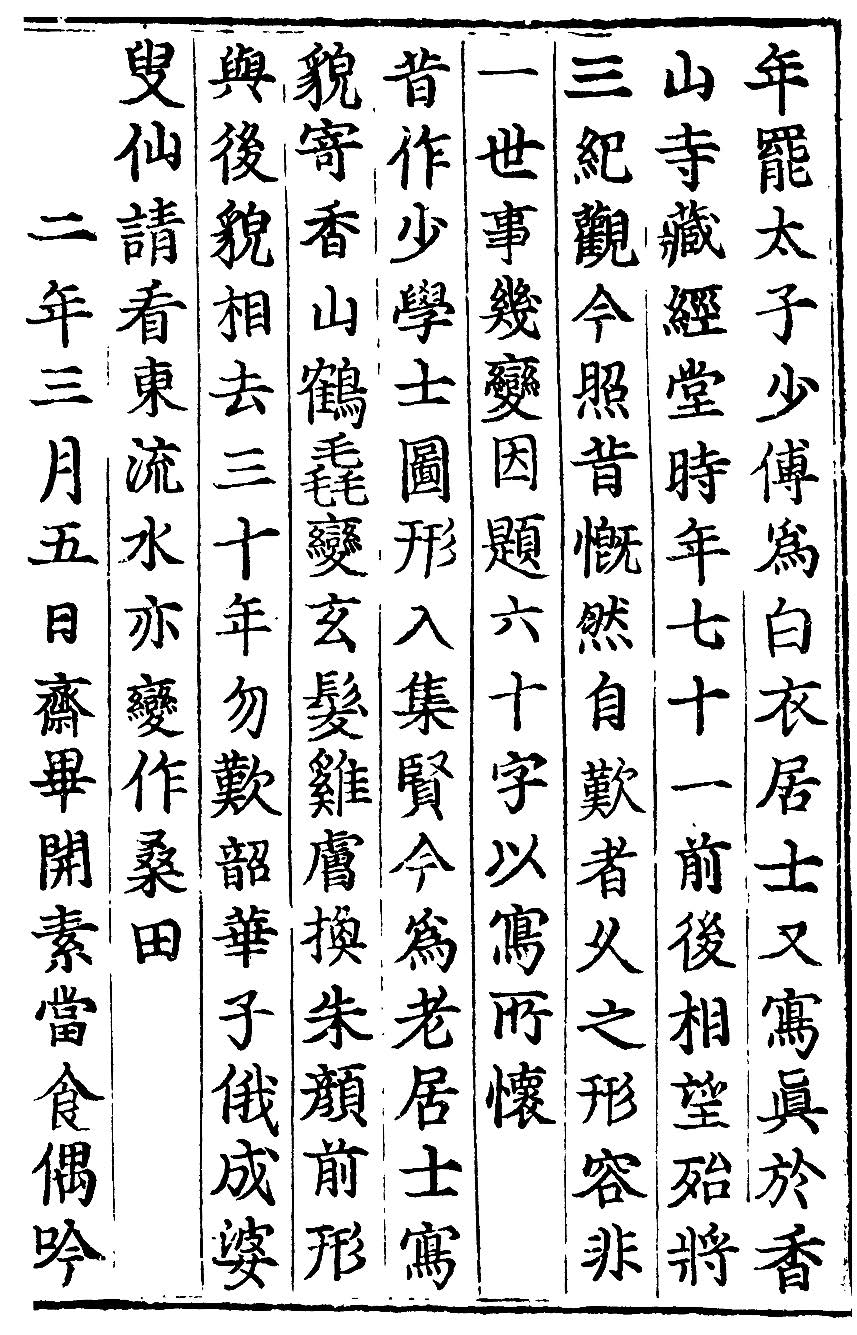 年罷太子少傅爲白衣居士又寫眞於香
山寺藏經堂時年七十一前後相望殆將
三紀觀今照昔慨然自歎者久之形容非
一世事幾變因題六十字以寫所懷
昔作少學士圖形入集賢今爲老居士寫
貌寄香山鶴毳變玄髮雞膚換朱顔前形
與後貌相去三十年勿歎韶華子俄成婆
叟仙請看東流水亦變作桑田
二年三月五日齋畢開素當食偶吟